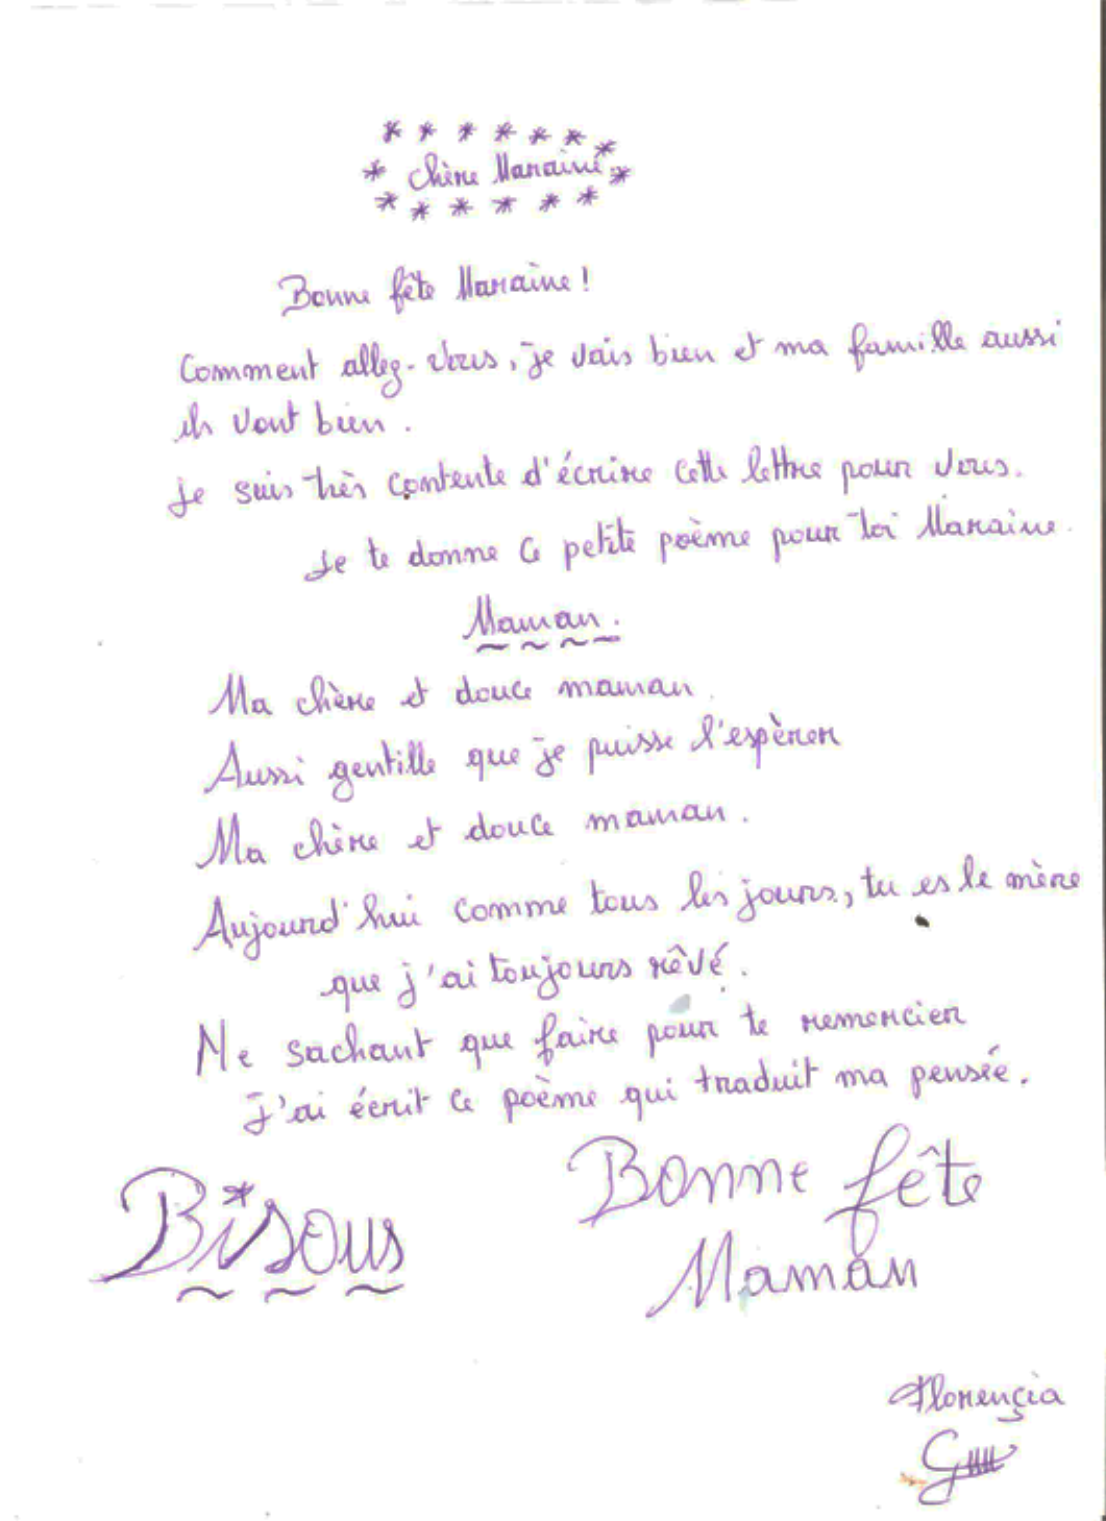 * * * * * * *
* chère Maraine *
* * * * * *
Bonne fête Maraine !
Comment allez-vous, je vais bien et ma famille aussi
ils vont bien.
Je suis très contente d'écrire cette lettre pour vous.
Je te donne ce petite poème pour toi Maraine.
Maman.
Ma chère et douce maman.
Aussi gentille que je puisse l'espèrer
Ma chère et douce maman.
Aujourd'hui comme tous les jours, tu es le mère
que j'ai toujours rêvé.
Ne sachant que faire pour te remercier
J'ai écrit ce poème qui traduit ma pensée.
Bisous
Bonne fête
Maman
Florençia